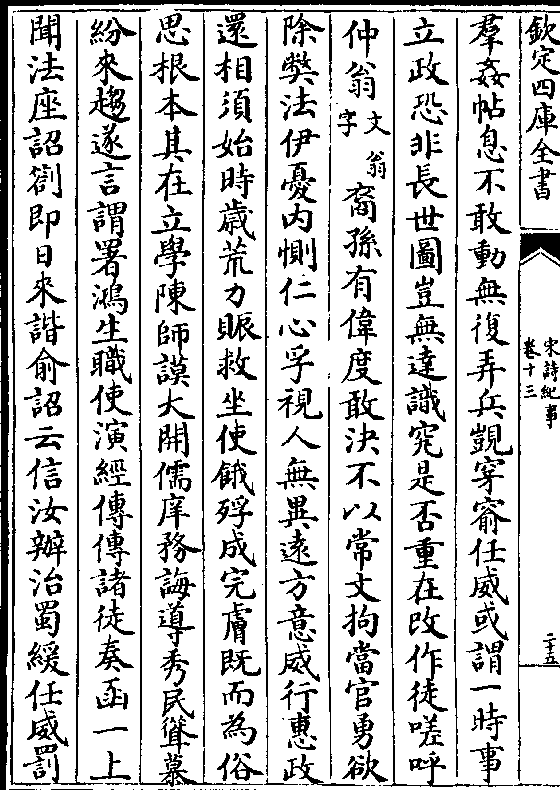 欽定四庫全書
宋詩紀事
卷十三
二十五
羣姦帖息不敢動無復弄兵覬穿窬任威或謂一時事
立政恐非長世圖豈無達識究是否重在改作徒嗟呼
仲翁文翁字裔孫有偉度敢決不以常文拘當官勇欲
除獘法伊憂内惻仁心孚視人無異遠方意威行惠政
還相須始時歲荒力賑救坐使餓殍成完膚既而為俗
思根本其在立學陳師謨大開儒庠務誨導秀民聳慕
紛來趨遂言謂署鴻生職使演經傳傳諸徒奏函一上
聞法座詔劄即日來諧俞詔云信汝辦治蜀緩任威罰